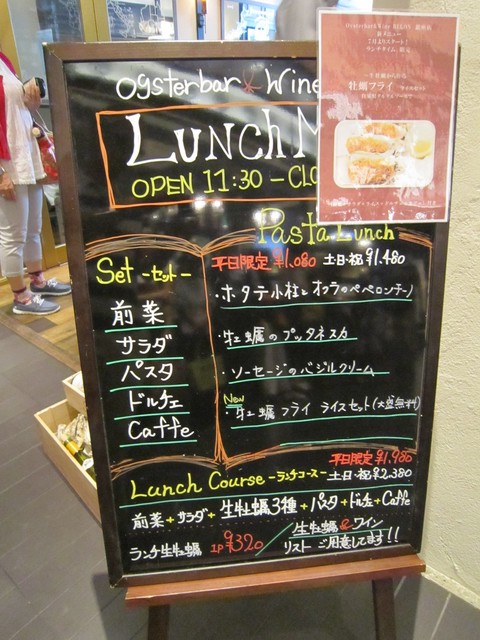 Oysterbar Wine
LUNCH M
OPEN 11:30 - CLO
牡蠣フライ
Pasta Lunch
平日限定 ¥1,080 土日・祝 ¥1,480
Set -セット-
前菜
サラダ
パスタ
ドルチェ
Caffe
・ホタテ小柱とオクラのペペロンチーノ
・牡蠣のプッタネスカ
・ソーセージのバジルクリーム
New
・牡蠣フライ ライスセット(大盛無料)
平日限定 ¥1,980
Lunch Course -ランチコース- 土日・祝 ¥2,380
前菜+サラダ+生牡蠣3種+パスタ+ドルチェ+Caffe
ランチ生牡蠣 1P ¥320 / 生牡蠣&ワイン
リストご用意してます!!